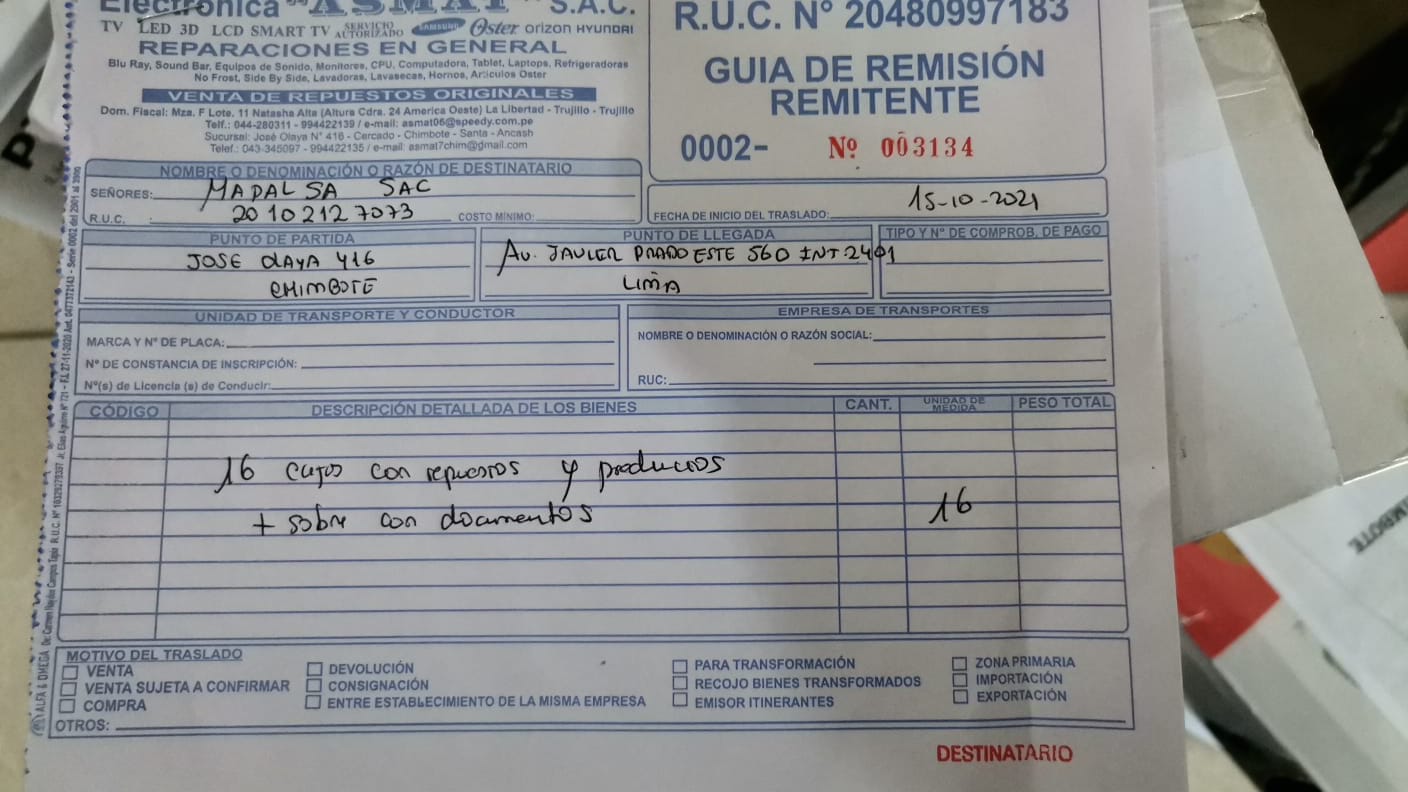 Electrónica "ASMAT" S.A.C.
TV LED 3D LCD SMART TV SERVICIO AUTORIZADO SAMSUNG Oster orizon HYUNDAI
REPARACIONES EN GENERAL
Blu Ray, Sound Bar, Equipos de Sonido, Monitores, CPU, Computadora, Tablet, Laptops, Refrigeradoras
No Frost, Side By Side, Lavadoras, Lavasecas, Hornos, Artículos Oster
VENTA DE REPUESTOS ORIGINALES
Dom. Fiscal: Mza. F Lote. 11 Natasha Alta (Altura Cdra. 24 America Oeste) La Libertad - Trujillo - Trujillo
Telf.: 044-280311 - 994422139 / e-mail: asmat06@speedy.com.pe
Sucursal: José Olaya N° 416 - Cercado - Chimbote - Santa - Ancash
Telef.: 043-345097 - 994422135 / e-mail: asmat7chim@gmail.com
R.U.C. N° 20480997183
GUIA DE REMISIÓN
REMITENTE
0002- Nº 003134
NOMBRE O DENOMINACIÓN O RAZÓN DE DESTINATARIO
SEÑORES: MADALSA SAC
R.U.C. : 20102127073 COSTO MÍNIMO:
FECHA DE INICIO DEL TRASLADO: 15-10-2021
PUNTO DE PARTIDA
JOSE OLAYA 416
CHIMBOTE
PUNTO DE LLEGADA
Av. JAVIER PRADO ESTE 560 INT:2401
LIMA
TIPO Y Nº DE COMPROB. DE PAGO
UNIDAD DE TRANSPORTE Y CONDUCTOR
MARCA Y Nº DE PLACA:
Nº DE CONSTANCIA DE INSCRIPCIÓN:
Nº(s) de Licencia (s) de Conducir:
EMPRESA DE TRANSPORTES
NOMBRE O DENOMINACIÓN O RAZÓN SOCIAL:
RUC:
CÓDIGO DESCRIPCIÓN DETALLADA DE LOS BIENES CANT. UNIDAD DE MEDIDA PESO TOTAL
16 cajas con repuestos y productos
+ sobre con documentos 16
MOTIVO DEL TRASLADO
VENTA
VENTA SUJETA A CONFIRMAR
COMPRA
DEVOLUCIÓN
CONSIGNACIÓN
ENTRE ESTABLECIMIENTO DE LA MISMA EMPRESA
PARA TRANSFORMACIÓN
RECOJO BIENES TRANSFORMADOS
EMISOR ITINERANTES
ZONA PRIMARIA
IMPORTACIÓN
EXPORTACIÓN
OTROS:
DESTINATARIO